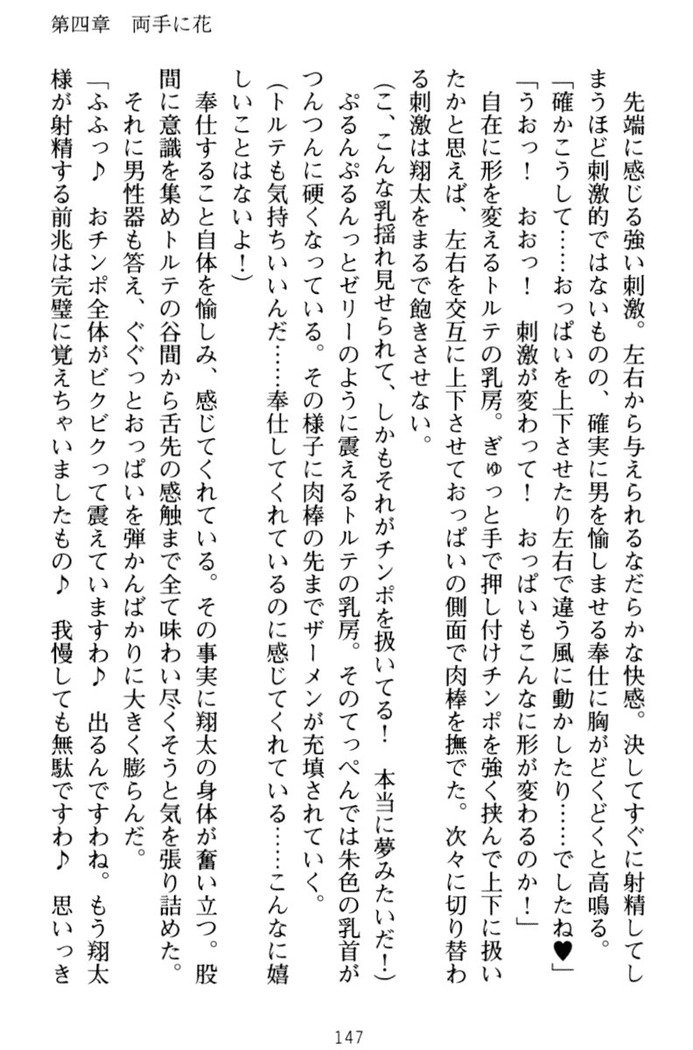 第四章　両手に花
先端に感じる強い刺激。左右から与えられるなだらかな快感。決してすぐに射精してし
まうほど刺激的ではないものの、確実に男を愉しませる奉仕に胸がどくどくと高鳴る。
「確かこうして……おっぱいを上下させたり左右で違う風に動かしたり……でしたね♥」
「うおっ！　おおっ！　刺激が変わって！　おっぱいもこんなに形が変わるのか！」
自在に形を変えるトルテの乳房。ぎゅっと手で押し付けチンポを強く挟んで上下に扱い
たかと思えば、左右を交互に上下させておっぱいの側面で肉棒を撫でた。次々に切り替わ
る刺激は翔太をまるで飽きさせない。
（こ、こんな乳揺れ見せられて、しかもそれがチンポを扱いてる！　本当に夢みたいだ！）
ぷるんぷるんっとゼリーのように震えるトルテの乳房。そのてっぺんでは朱色の乳首が
つんつんに硬くなっている。その様子に肉棒の先までザーメンが充填されていく。
（トルテも気持ちいいんだ……奉仕してくれているのに感じてくれている……こんなに嬉
しいことはないよ！）
奉仕すること自体を愉しみ、感じてくれている。その事実に翔太の身体が奮い立つ。股
間に意識を集めトルテの谷間から舌先の感触まで全て味わい尽くそうと気を張り詰めた。
それに男性器も答え、ぐぐっとおっぱいを弾かんばかりに大きく膨らんだ。
「ふふっ♪　おチンポ全体がビクビクって震えていますわ♪　出るんですわね。もう翔太
様が射精する前兆は完璧に覚えちゃいましたもの♪　我慢しても無駄ですわ♪　思いっき
147